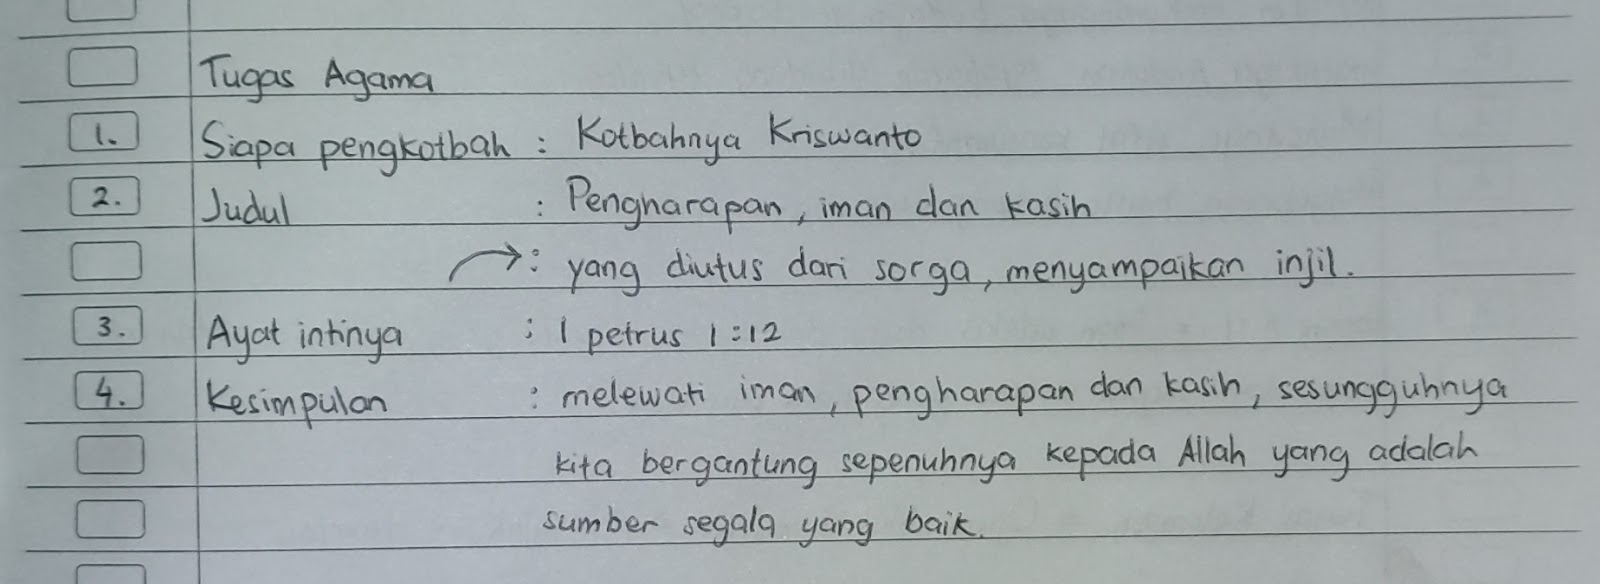 Tugas Agama
1. Siapa pengkotbah : Kotbahnya Kriswanto
2. Judul : Pengharapan, iman dan kasih
: yang diutus dari sorga, menyampaikan injil.
3. Ayat intinya : 1 petrus 1:12
4. Kesimpulan : melewati iman, pengharapan dan kasih, sesungguhnya
kita bergantung sepenuhnya kepada Allah yang adalah
sumber segala yang baik.